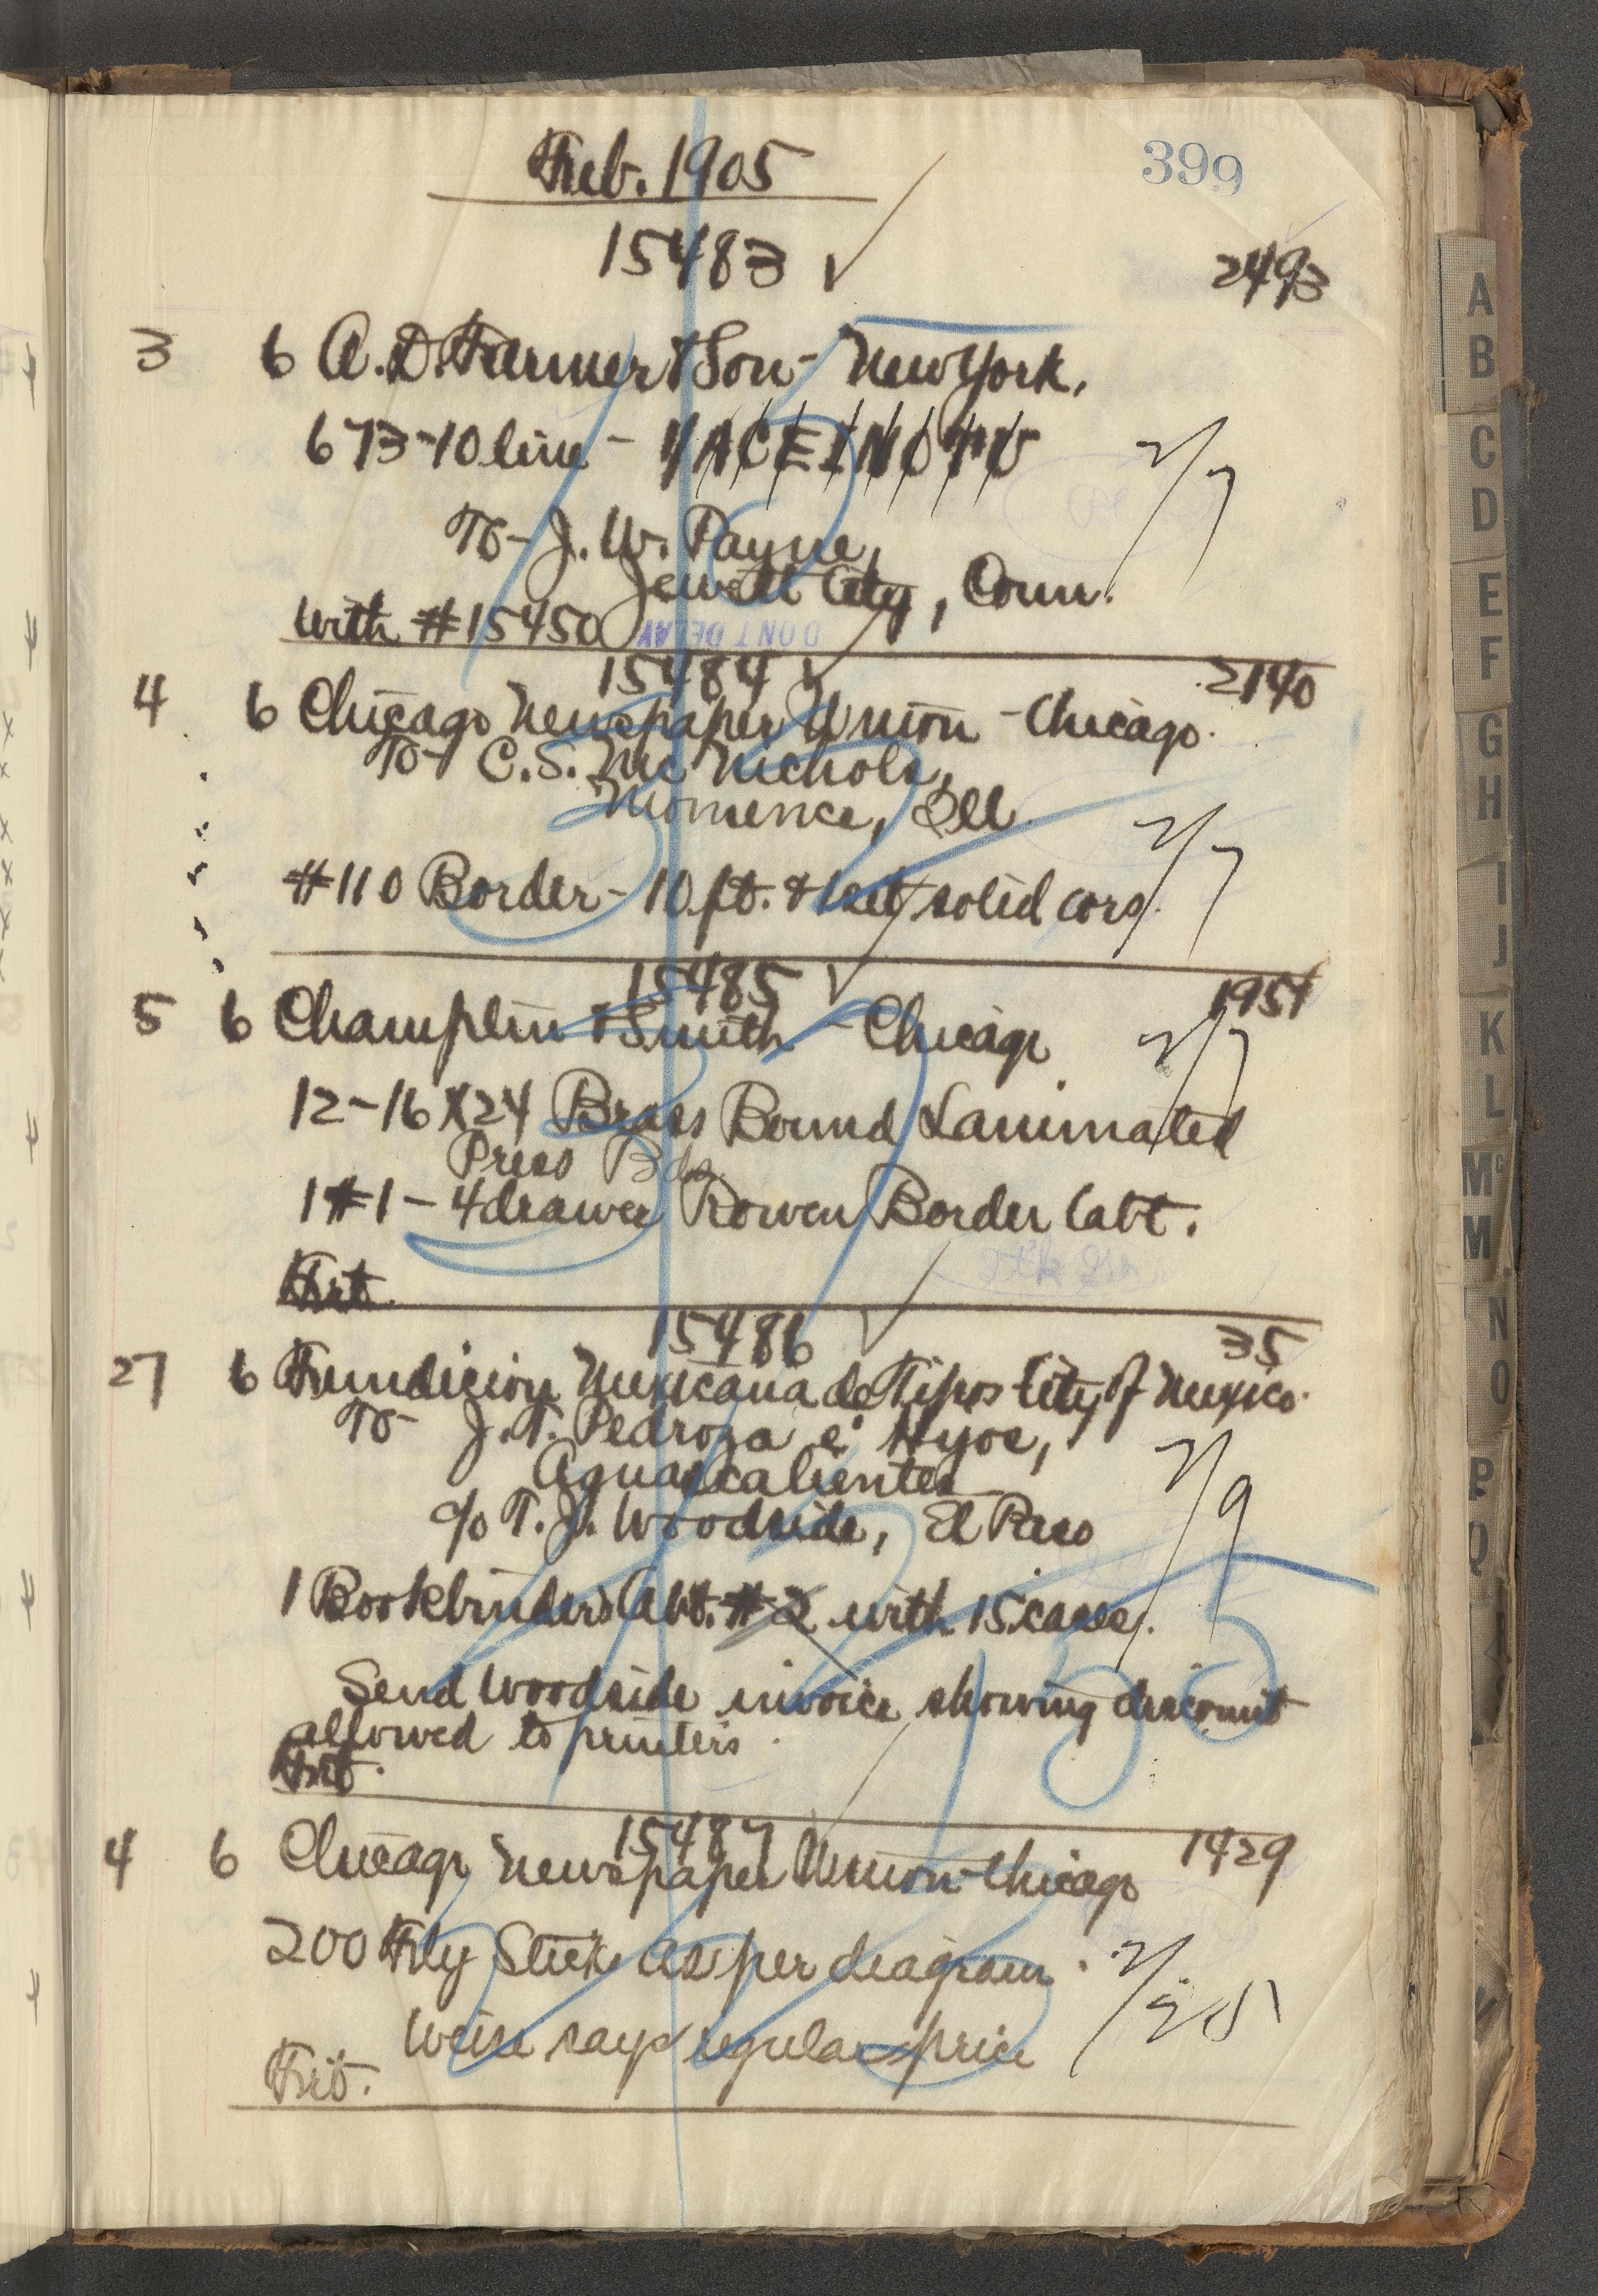 Feb. 1905
399
15483 ✓
2493
3 6 A. D. Farmer & Son - New York.
673 - 10 line - 1/ACEINOTU
2/7
To - J. W. Payne,
Jewett City, Conn.
With #15450
DONT DELAY
15484 ✓ 2140
4 6 Chicago Newspaper Union - Chicago.
To - C. S. Mc Nichols,
Momence, Ill.
2/7
#110 Border - 10 ft. & 1 set solid cors.
15485 ✓ 1951
5 6 Champlin & Smith - Chicago
2/7
12 - 16 x 24 Brass Bound Laminated
Press Bds.
1 #1 - 4 drawer Rowen Border Cabt.
Frt.
15486 ✓ 35
27 6 Fundicion Mexicana de Tipos City of Mexico.
To - J. T. Pedroza e' Hyos,
Aguascalientes
2/9
c/o T. J. Woodside, El Paso
1 Bookbinders Cabt. #2 with 15 cases.
Send Woodside invoice showing discount
allowed to printers.
Frt.
15487 1429
4 6 Chicago Newspaper Union - Chicago
200 Fly Sticks as per diagram.
2/25
Weise says regular price
Frt.
A
B
C
D
E
F
G
H
I
J
K
L
Mc
M
N
O
P
Q